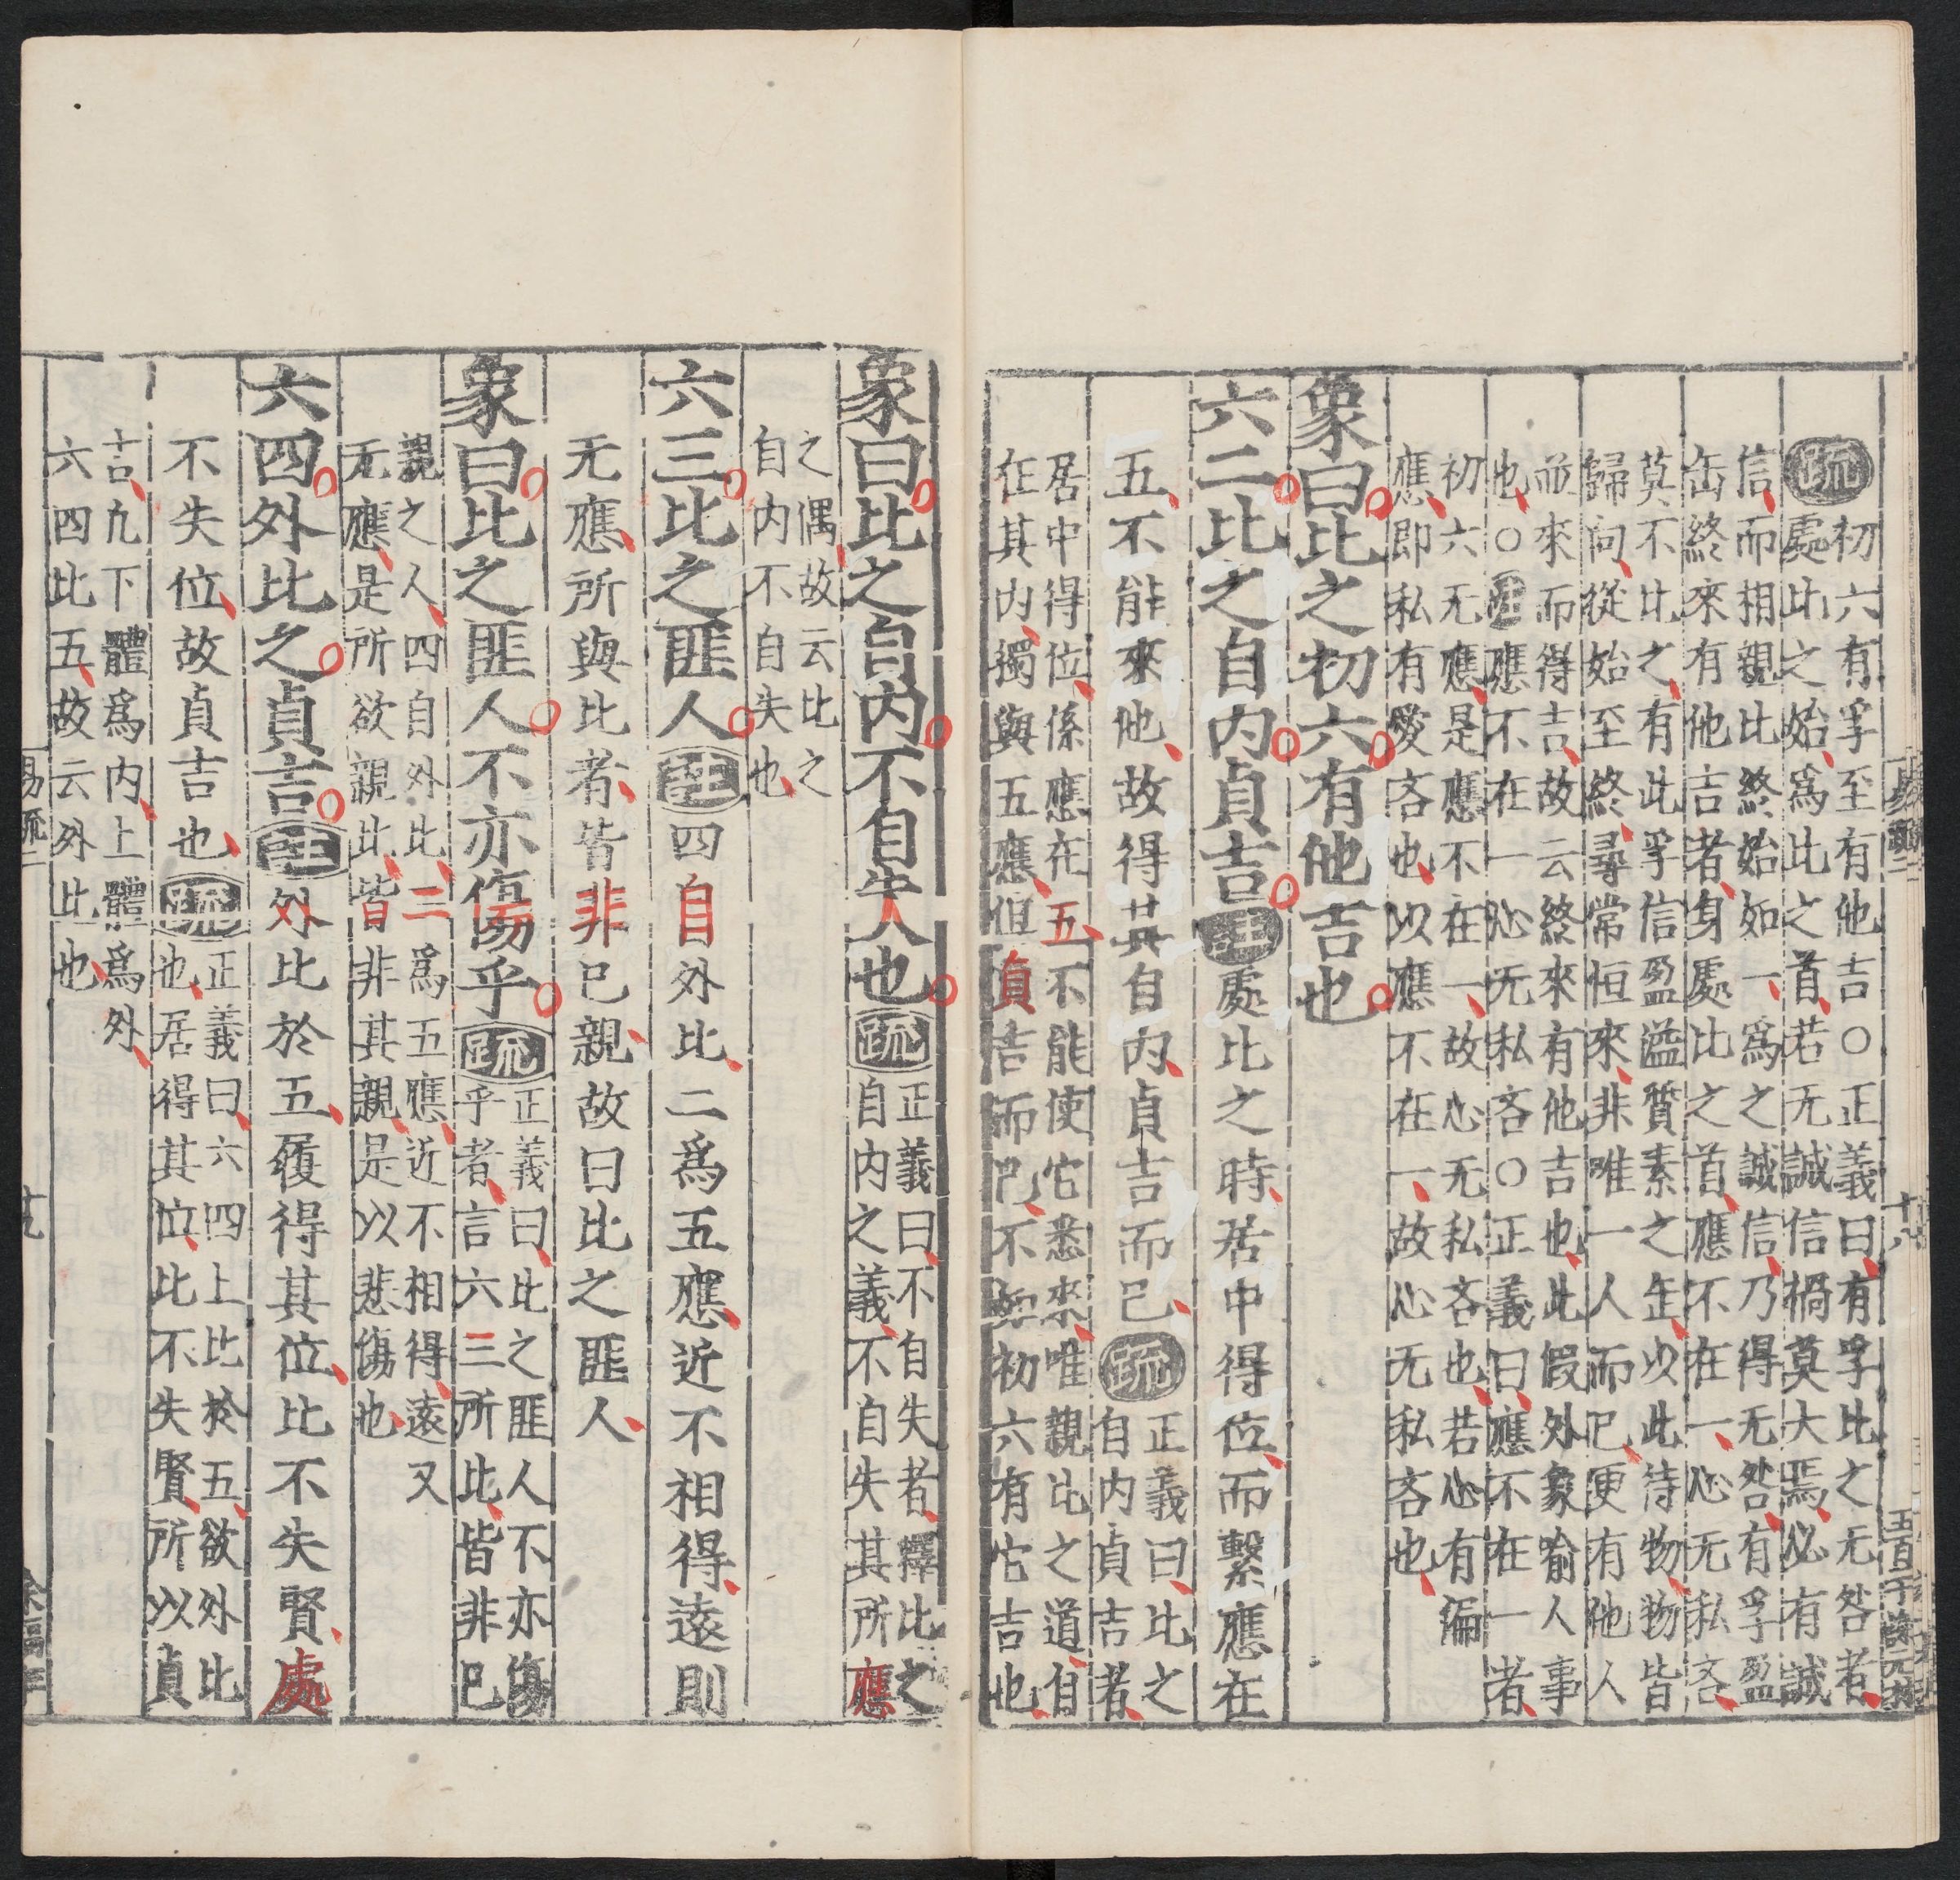 疏初六有孚至有他吉○正義曰有孚比之无咎者
處此之始爲此之首若无誠信禍莫大焉必有誠
信而相親比終始如一爲之誠信乃得无咎有孚盈
缶終來有他吉者身處比之首應不在一心无私吝
莫不比之有此孚信盈溢質素之缶以此待物物皆
歸向從始至終尋常恒來非唯一人而已更有他人
並來而得吉故云終來有他吉也此假外象喻人事
也○注應不在一心无私吝○正義曰應不在一者
初六无應是應不在一故心无私吝也若心有偏
應即私有愛吝也以應不在一故心无私吝也
象曰比之初六有他吉也
六二比之自内貞吉注處比之時居中得位而繫應在
五不能來他故得其自内貞吉而已疏正義曰比之
自内貞吉者
居中得位係應在五不能使它悉來唯親比之道自
在其内獨與五應但貞吉而已不如初六有它吉也
象曰比之自内不自失人也疏正義曰不自失者釋比之
自内之義不自失其所應
之偶故云比之
自内不自失也
六三比之匪人注四自外比二爲五應近不相得遠則
无應所與比者皆非已親故曰比之匪人
象曰比之匪人不亦傷乎疏正義曰比之匪人不亦傷
乎者言六三所比皆非已
親之人四自外比二爲五應近不相得遠又
无應是所欲親比皆非其親是以悲傷也
六四外比之貞吉注外比於五履得其位比不失賢處
不失位故貞吉也疏正義曰六四上比於五欲外比
也居得其位比不失賢所以貞
吉九下體爲内上體爲外
六四比五故云外比也
易疏二
十九
十八